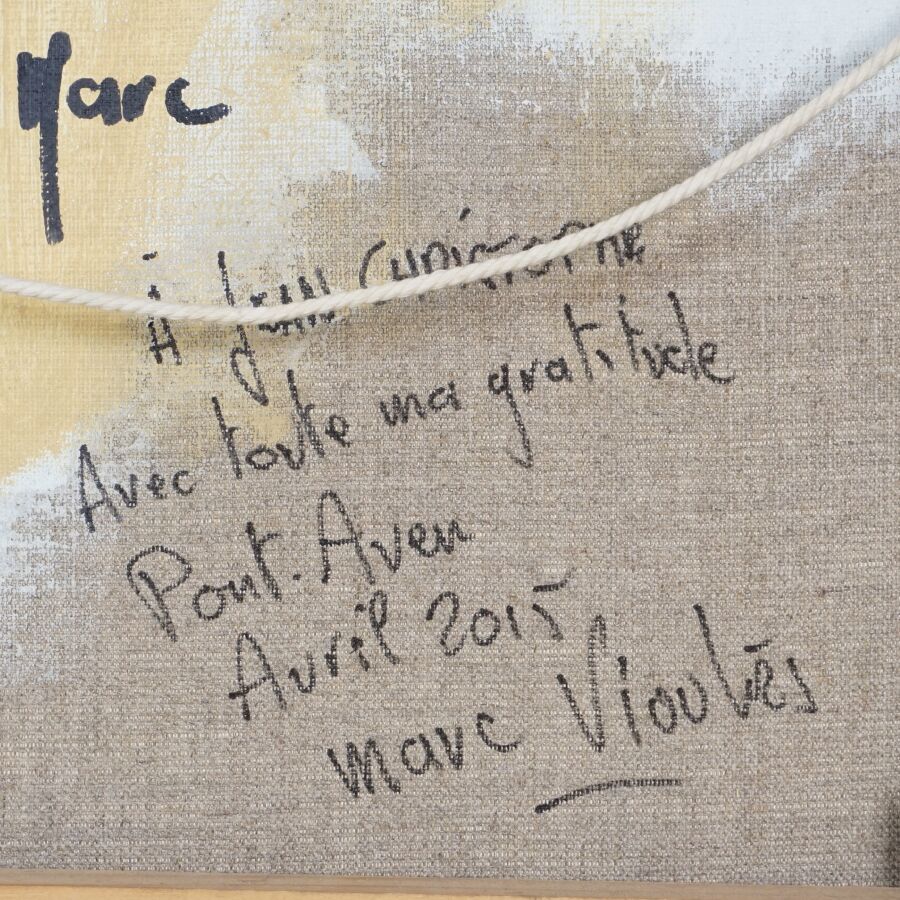 Marc
À JEAN CHRISTOPHE
Avec toute ma gratitude
Pont-Aven
Avril 2015
Marc Vioulès